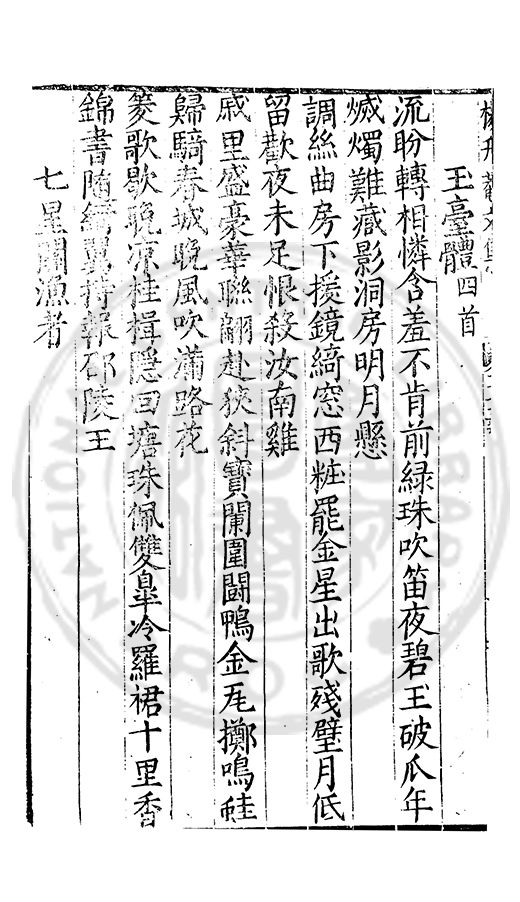 玉臺體四首
流盼轉相憐含羞不肯前綠珠吹笛夜碧玉破瓜年
㓕燭難藏影洞房明月懸
調絲曲房下援鏡綺窓西粧罷金星出歌殘璧月低
留歡夜未足恨殺汝南雞
戚里盛豪華聯翩赴狹斜寶闌圍鬪鴨金瓦擲鳴蛙
歸騎春城晚風吹滿路花
菱歌歇晚凉桂楫隱回塘珠佩雙皐冷羅裙十里香
錦書隨鴈翼持報邵陵王
七星關漁者